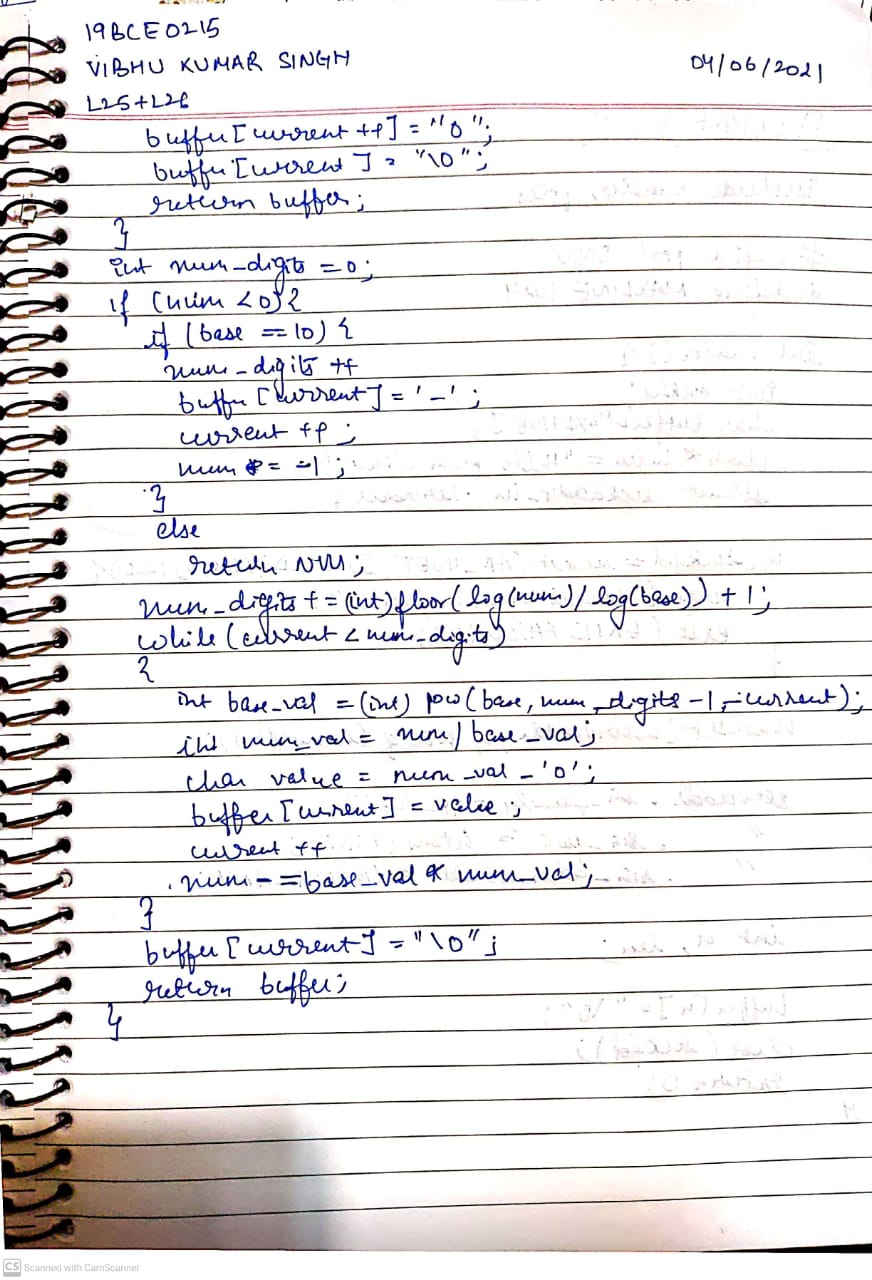 19BCE0215
VIBHU KUMAR SINGH
04/06/2021
L25+L26
buffer[current ++] = "0";
buffer[current] = "\0";
return buffer;
}
int num_digits = 0;
if (num < 0) {
if (base == 10) {
num_digits ++
buffer [current] = '-';
current ++;
num *= -1;
}
else
return NULL;
num_digits += (int) floor(log(num)/log(base)) + 1;
while (current < num_digits)
{
int base_val = (int) pow(base, num_digits -1 - current);
int num_val = num / base_val;
char value = num_val - '0';
buffer [current] = value;
current ++
num -= base_val * num_val;
}
buffer [current] = "\0";
return buffer;
}
CS Scanned with CamScanner